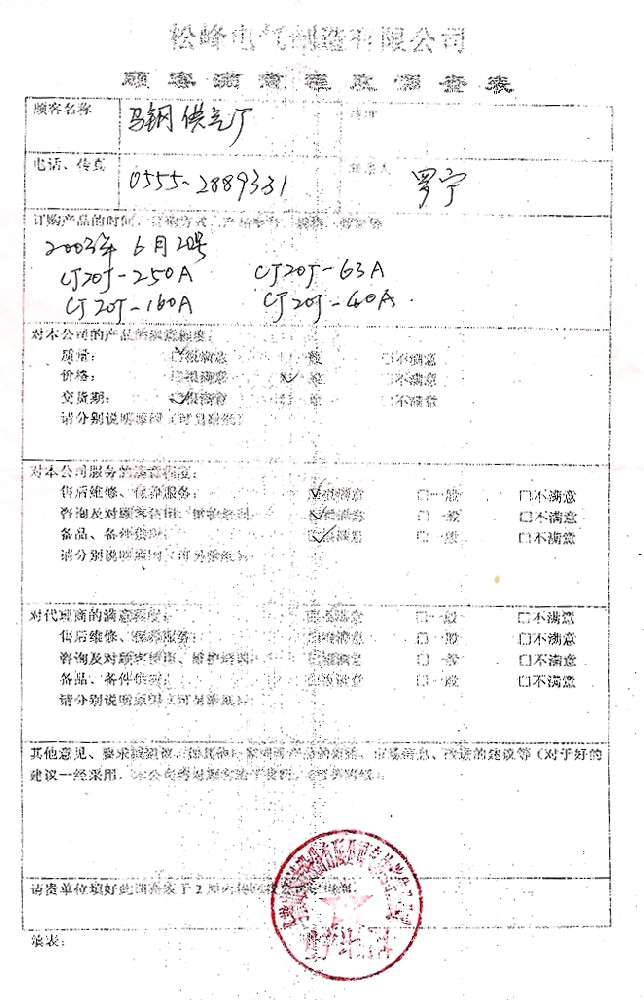 松峰电气制造有限公司
顾客满意度反馈调查表
顾客名称 马钢供气厂
电话、传真 0555-2889331 联系人 罗宁
订购产品的时间、订购方式、产品型号、规格
2003年6月20号
CJ20J-250A CJ20J-63A
CJ20J-160A CJ20J-40A.
对本公司的产品的满意程度:
质量: ☑很满意 □一般 □不满意
价格: □很满意 ☑一般 □不满意
交货期: ☑很满意 □一般 □不满意
请分别说明原因(可另附纸)
对本公司服务的满意程度:
售后维修、保养服务: ☑很满意 □一般 □不满意
咨询及对顾客使用、维护培训: ☑很满意 □一般 □不满意
备品、备件供应: ☑很满意 □一般 □不满意
请分别说明原因(可另附纸)
对代理商的满意程度: □很满意 □一般 □不满意
售后维修、保养服务: □很满意 □一般 □不满意
咨询及对顾客使用、维护培训: □很满意 □一般 □不满意
备品、备件供应: □很满意 □一般 □不满意
请分别说明原因(可另附纸)
其他意见、要求或建议、改进的建议等(对于好的
建议一经采用,本公司将
请贵单位填好此调查表于2周内
填表: